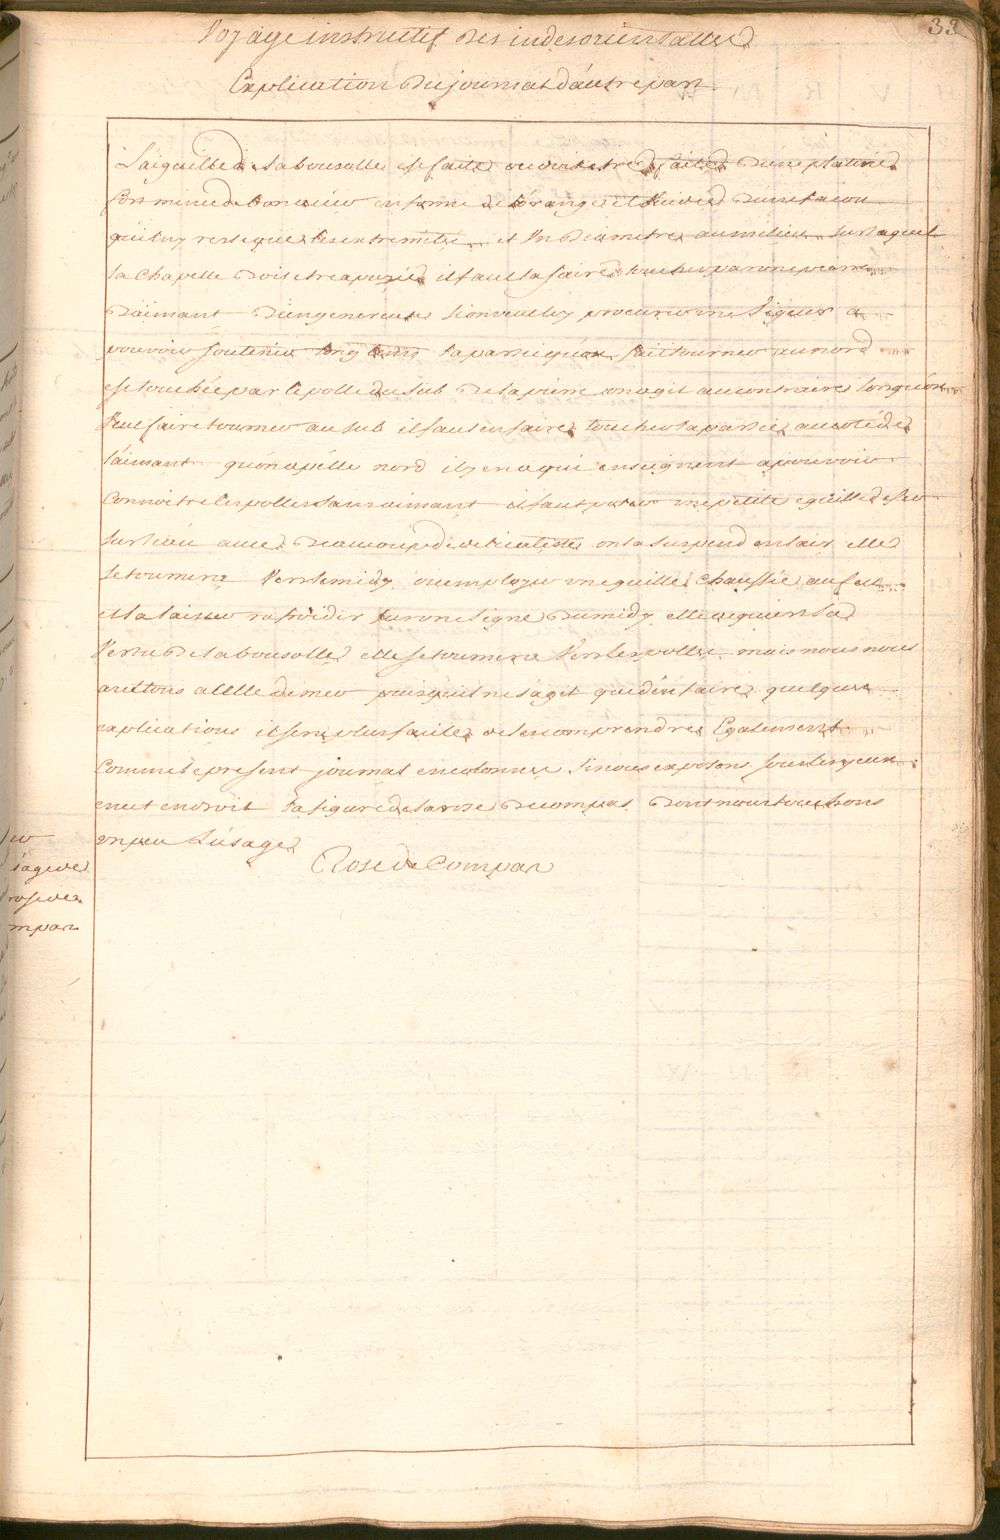 33
Voyage instructif des indes orientalles
Explication du journal d'autre par
L'aiguille de la bousolle est faite ou doit etre faite d'une platine
fort mince de bon acier en forme de lorange et vuidée d'une facon
qu'il ny reste que les extremites et un diametre au milieu sur laquel
la chapelle doit etre apuiée il faut la faire toucher par une pierre
d'aimant d'ingenereuse si on veut luy procurer une vigueur a
pouvoir soutenir long tems la partie qu'on fait tourner au nord
est touchée par le polle du sud de la pierre on agit au contraire lorsqu'on
veut faire tourner au sud il faut en faire toucher la partie au coté de
l'aimant qu'on apélle nord il y en a qui enseignent a pouvoir
connoitre les polles sans aimant il faut poser une petite eguille de fer
sur l'eau avec beaucoup de on la suspend en lair elle
se tournera vers le midy ou employer une guille chauffée au feu
et la laisser rafroidir sur une ligne du midy elle aquiert la
vertu de la bousolle elle se tournera vers les polles mais nous nous
arettons a celle de mer puis quil ne s'agit que d'en faire quelque
explications il sera plus facile de le comprendre Egalement
comme le present journal en le donner si nous exposons sous les yeux
en cet endroit la figure de la rose de compas dont nous touchons
un peu l'usage
Rose de Compas
er
l'age de
rose de
mpas